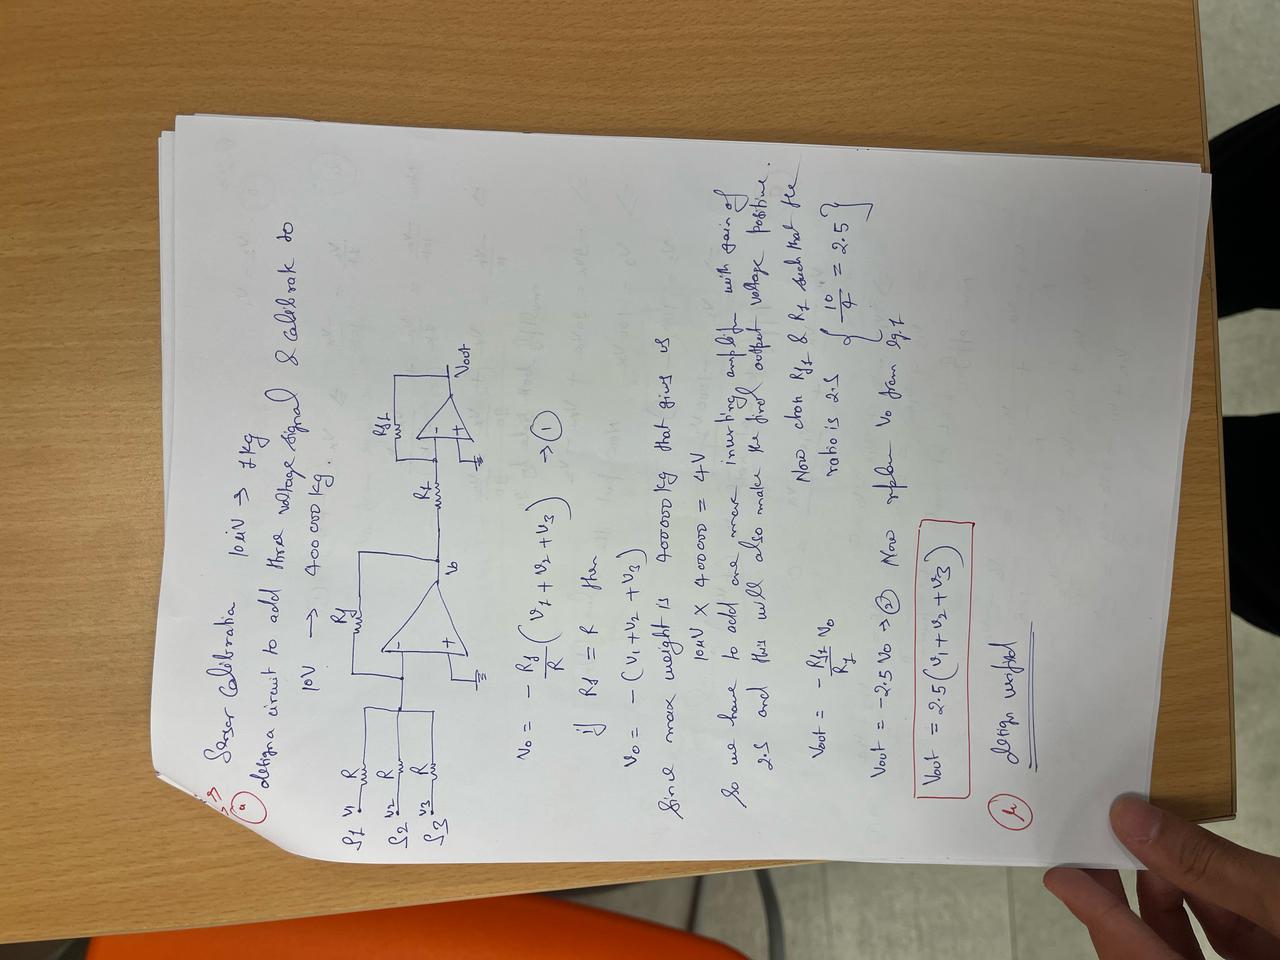 (a) Sensor Calibration 10μV → 1kg
design a circuit to add three voltage signal & Calibrate to
10V → 400 000 kg.
S1 V1 R
S2 V2 R
S3 V3 R
Rf
- +
Vo
R1
Rf1
- +
Vout
Vo = - Rf/R (V1 + V2 + V3) → (1)
if Rf = R then
Vo = - (V1 + V2 + V3)
Since max weight is 400000 kg that gives is
10μV × 400000 = 4V
So we have to add one more inverting amplifier with gain of
2.5 and this will also make the final output voltage positive.
Now Rf1 & R1 such that the
ratio is 2.5 { 10/4 = 2.5 }
Vout = - Rf1/R1 Vo
Vout = -2.5 Vo → (2) Now Vo from eq.1
Vout = 2.5 (V1 + V2 + V3)
design verified